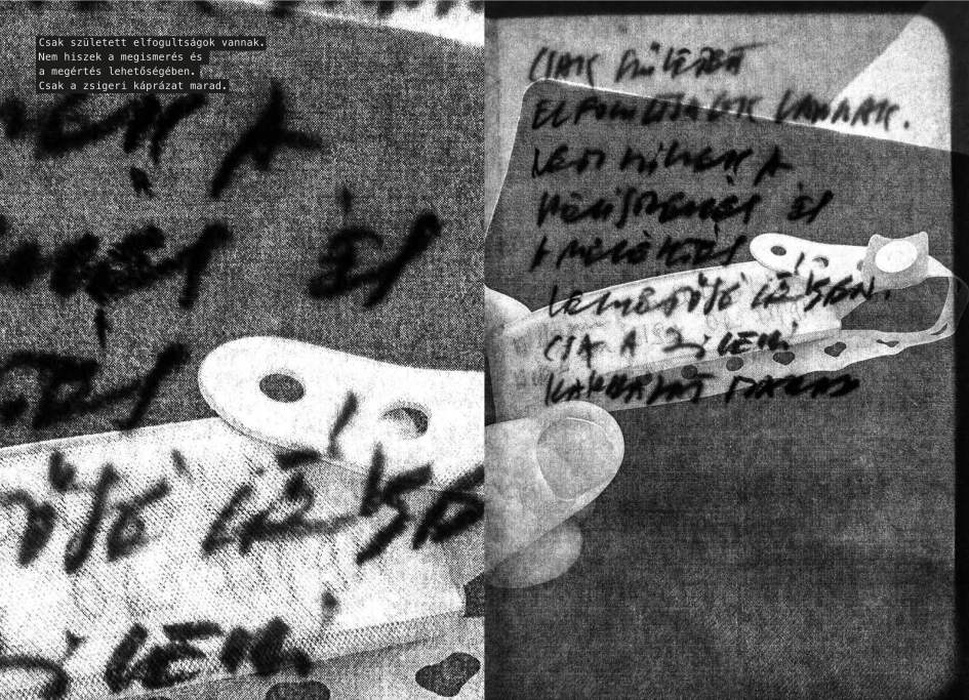 Csak született elfogultságok vannak.
Nem hiszek a megismerés és
a megértés lehetőségében.
Csak a zsigeri káprázat marad.
CSAK SZÜLETETT
ELFOGULTSÁGOK VANNAK.
NEM HISZEK A
MEGISMERÉS ÉS
A MEGÉRTÉS
LEHETŐSÉGÉBEN.
CSAK A ZSIGERI
KÁPRÁZAT MARAD